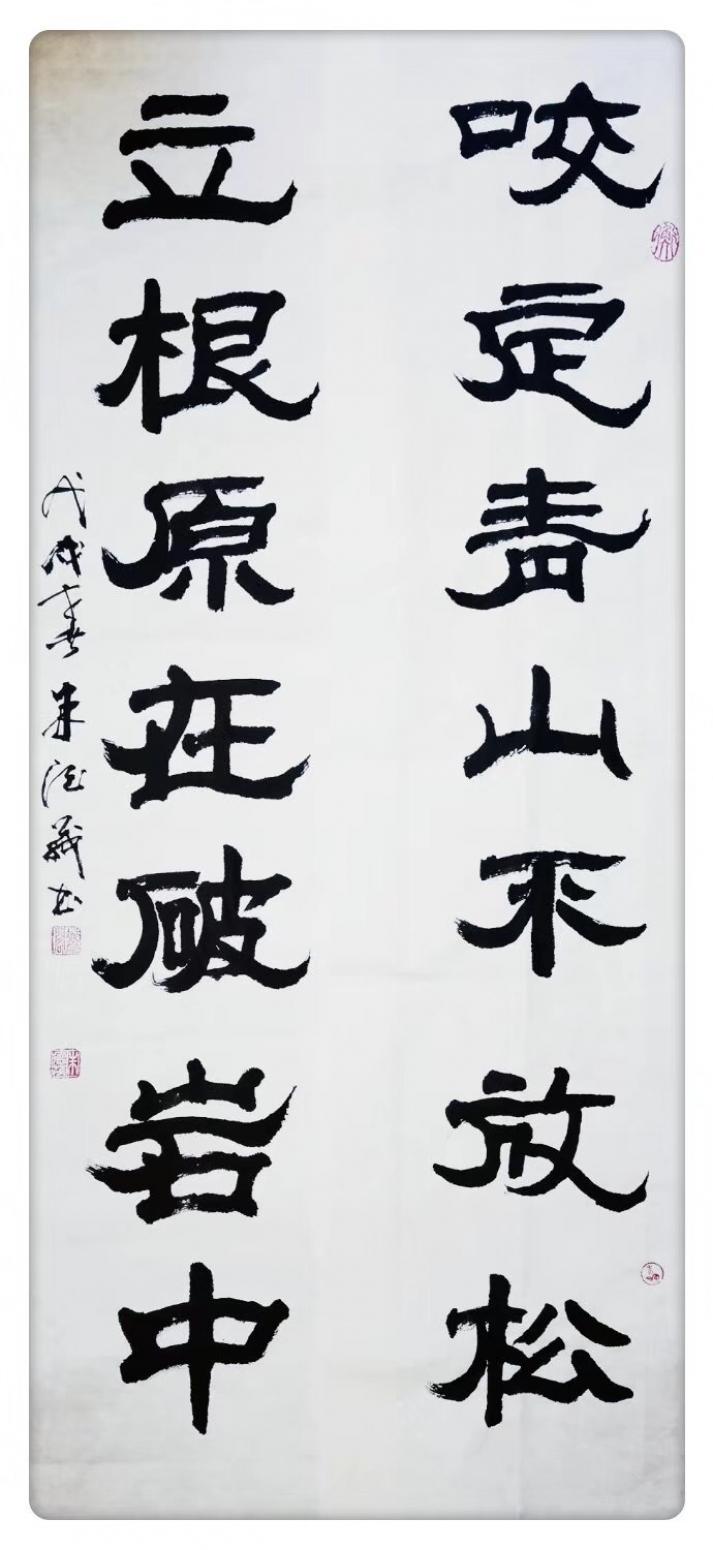 咬定青山不放松
立根原在破岩中
戊戌春朱德义书